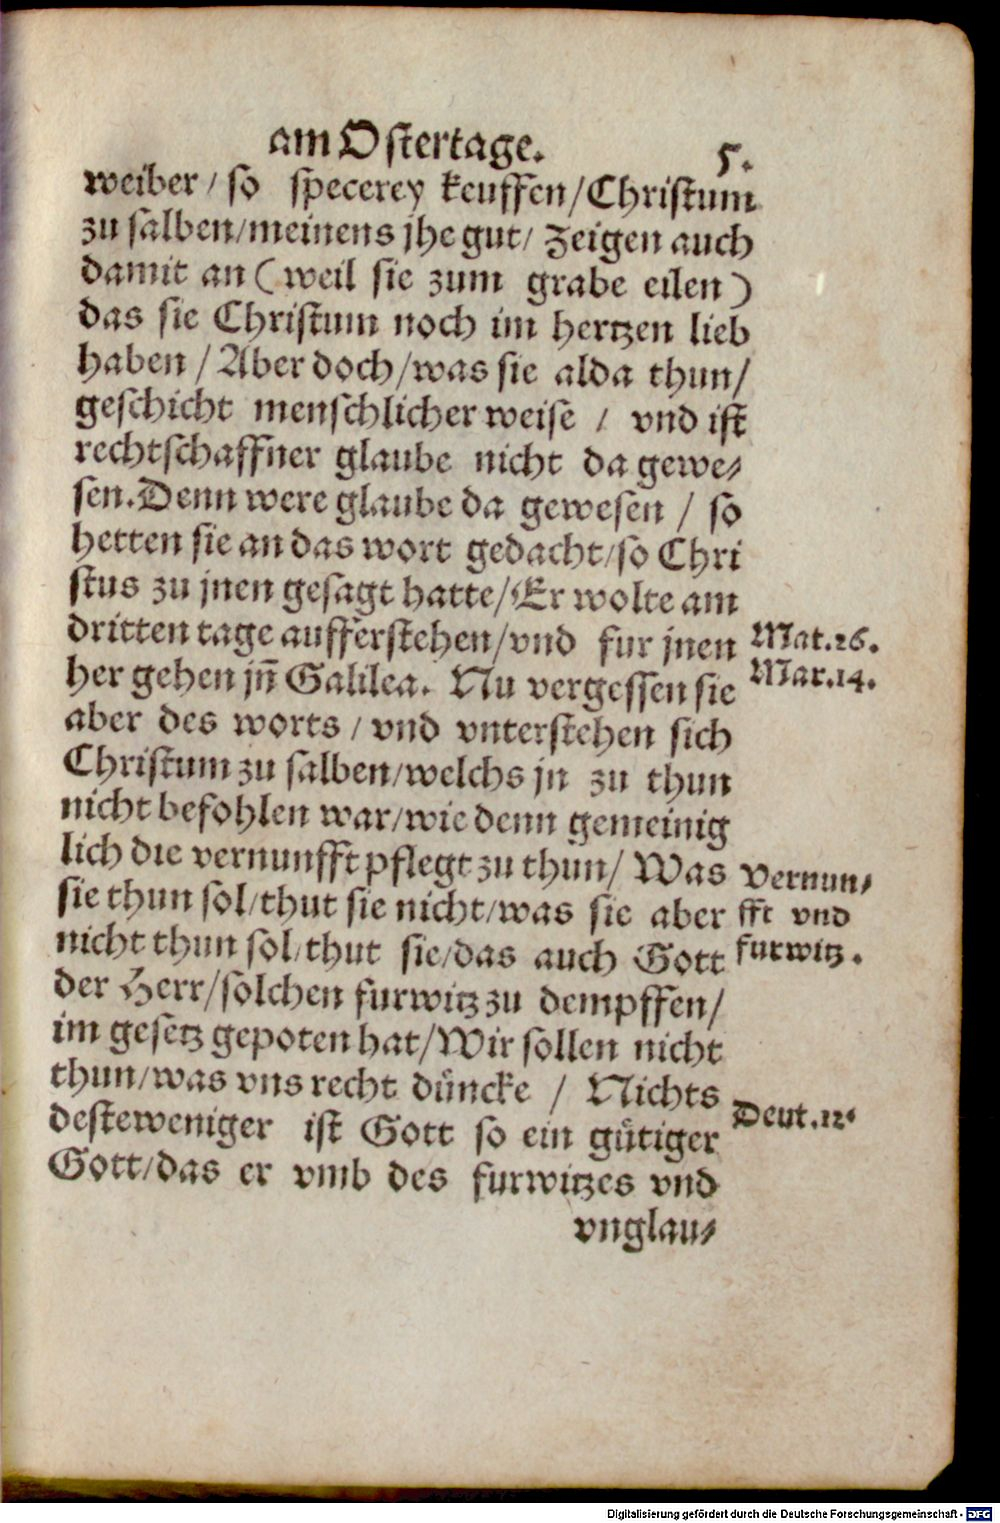 am Ostertage. 5.
weiber / so specerey keuffen/Christum
zu salben/meinens jhe gut/ Zeigen auch
damit an (weil sie zum grabe eilen)
das sie Christum noch im hertzen lieb
haben / Aber doch/was sie alda thun/
geschicht menschlicher weise / vnd ist
rechtschaffner glaube nicht da gewe⸗
sen. Denn were glaube da gewesen / so
hetten sie an das wort gedacht/so Chri
stus zu jnen gesagt hatte/Er wolte am
dritten tage aufferstehen/vnd fur jnen
Mat.26.
her gehen jñ Galilea. Nu vergessen sie
Mar.14.
aber des worts / vnd vnterstehen sich
Christum zu salben/welchs jn zu thun
nicht befohlen war/wie denn gemeinig
lich die vernunfft pflegt zu thun/ Was
Vernun⸗
sie thun sol/thut sie nicht/was sie aber
fft vnd
nicht thun sol/thut sie/das auch Gott
furwitz.
der Herr/solchen furwitz zu dempffen/
im gesetz gepoten hat/Wir sollen nicht
thun/was vns recht düncke / Nichts
Deut.12.
desteweniger ist Gott so ein gütiger
Gott/das er vmb des furwitzes vnd
vnglau⸗
Digitalisierung gefördert durch die Deutsche Forschungsgemeinschaft - DFG